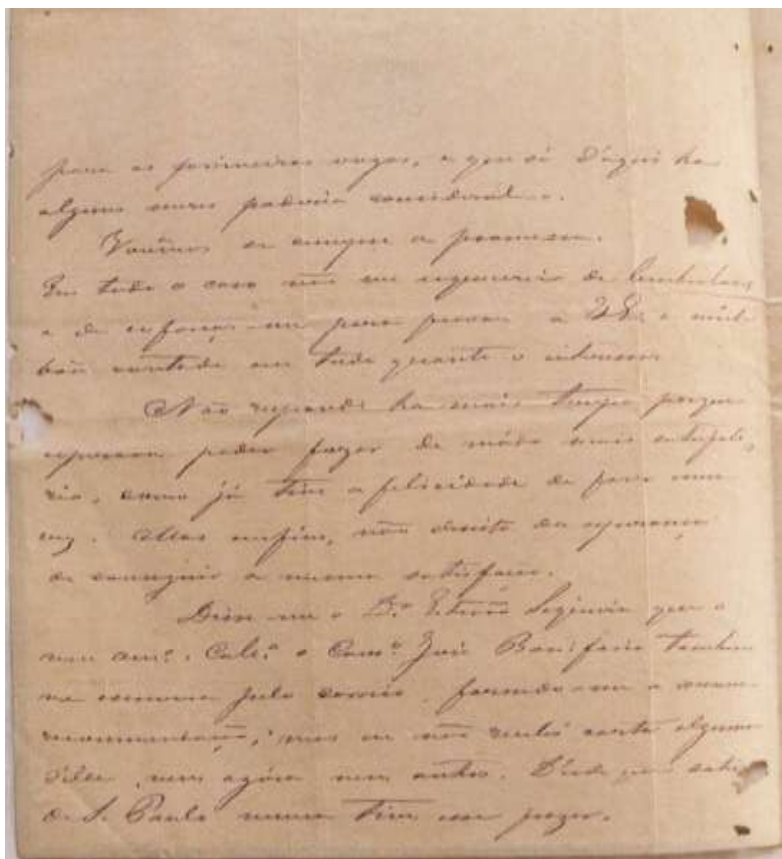 para as primeiras vagas, e que só d'aqui ha
alguns mezes poderia considerar-se.
Veremos se cumpre a promessa.
Em todo o caso não me esquecerei de lembral-as
e de esforçar-me para provar a VS. a minha
boa vontade em tudo quanto o interessar.
Não respondi ha mais tempo porque
esperava poder fazer de modo mais satisfato
rio, como já tive a felicidade de fazer uma
vez. Mas enfim, não desisto da esperança
de conseguir a mesma satisfação.
Disse-me o Dr. Estevão que o
meu am.º e Coll.ª o Cons.º José Bonifacio tambem
me escrevera pelo correio, fazendo-me a mesma
recommendação; mas eu não recebi carta alguma
d'elle, nem agora nem antes. Desde que sahi
de S. Paulo nunca tive esse prazer.